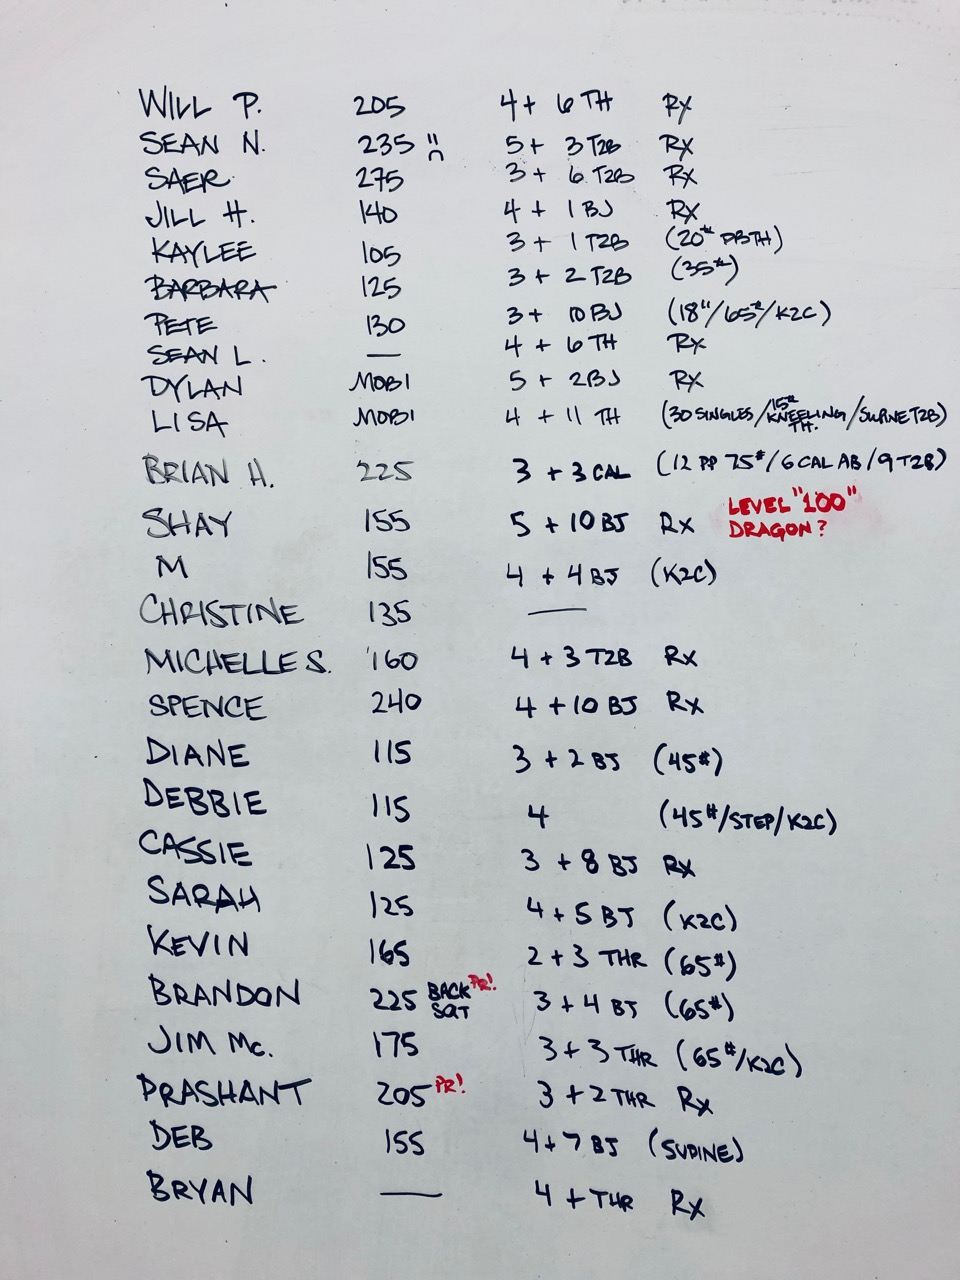 WILL P. 205 4 + 6 TH RX
SEAN N. 235 5 + 3 T2B RX
SAER 275 3 + 6 T2B RX
JILL H. 140 4 + 1 BJ RX
KAYLEE 105 3 + 1 T2B (20# DBTH)
BARBARA 125 3 + 2 T2B (35#)
PETE 130 3 + 10 BJ (18"/65#/K2C)
SEAN L. — 4 + 6 TH RX
DYLAN MOBI 5 + 2BJ RX
LISA MOBI 4 + 11 TH (30 SINGLES/15# KNEELING TH./SUPINE T2B)
BRIAN H. 225 3 + 3 CAL (12 PP 75#/6 CAL AB/9 T2B)
SHAY 155 5 + 10 BJ RX LEVEL "100" DRAGON?
M 155 4 + 4 BJ (K2C)
CHRISTINE 135 —
MICHELLE S. 160 4 + 3 T2B RX
SPENCE 240 4 + 10 BJ RX
DIANE 115 3 + 2 BJ (45#)
DEBBIE 115 4 (45#/STEP/K2C)
CASSIE 125 3 + 8 BJ RX
SARAH 125 4 + 5 BJ (K2C)
KEVIN 165 2 + 3 THR (65#)
BRANDON 225 BACK SQT PR! 3 + 4 BJ (65#)
JIM Mc. 175 3 + 3 THR (65#/K2C)
PRASHANT 205 PR! 3 + 2 THR RX
DEB 155 4 + 7 BJ (SUPINE)
BRYAN — 4 + THR RX